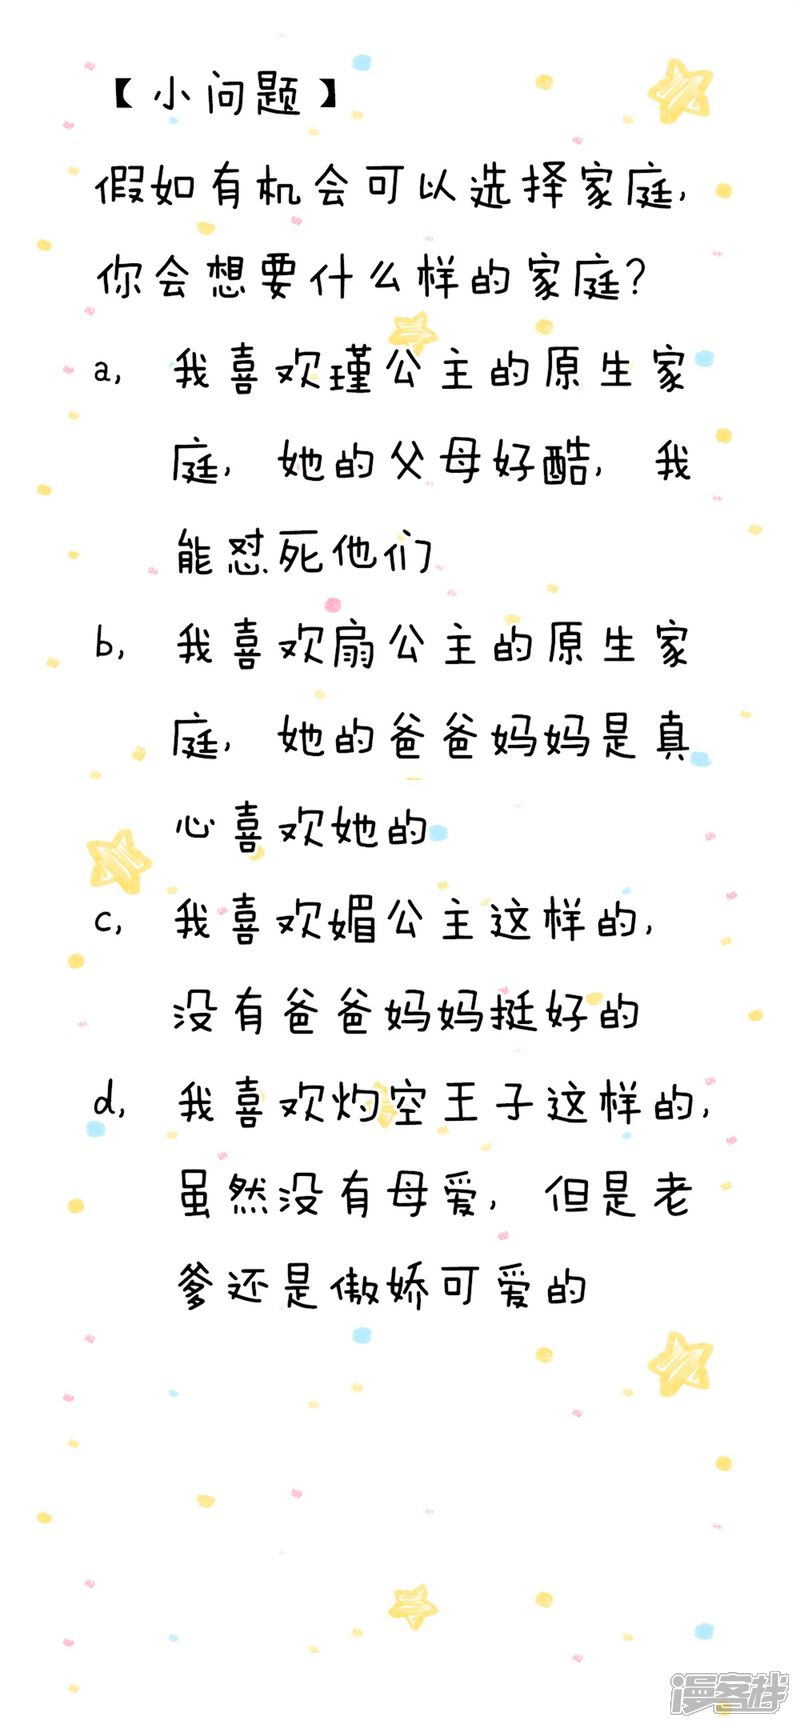 【小问题】
假如有机会可以选择家庭,
你会想要什么样的家庭?
a, 我喜欢瑾公主的原生家
庭, 她的父母好酷, 我
能怼死他们
b, 我喜欢扇公主的原生家
庭, 她的爸爸妈妈是真
心喜欢她的
c, 我喜欢媚公主这样的,
没有爸爸妈妈挺好的
d, 我喜欢灼空王子这样的,
虽然没有母爱, 但是老
爹还是傲娇可爱的
漫客栈